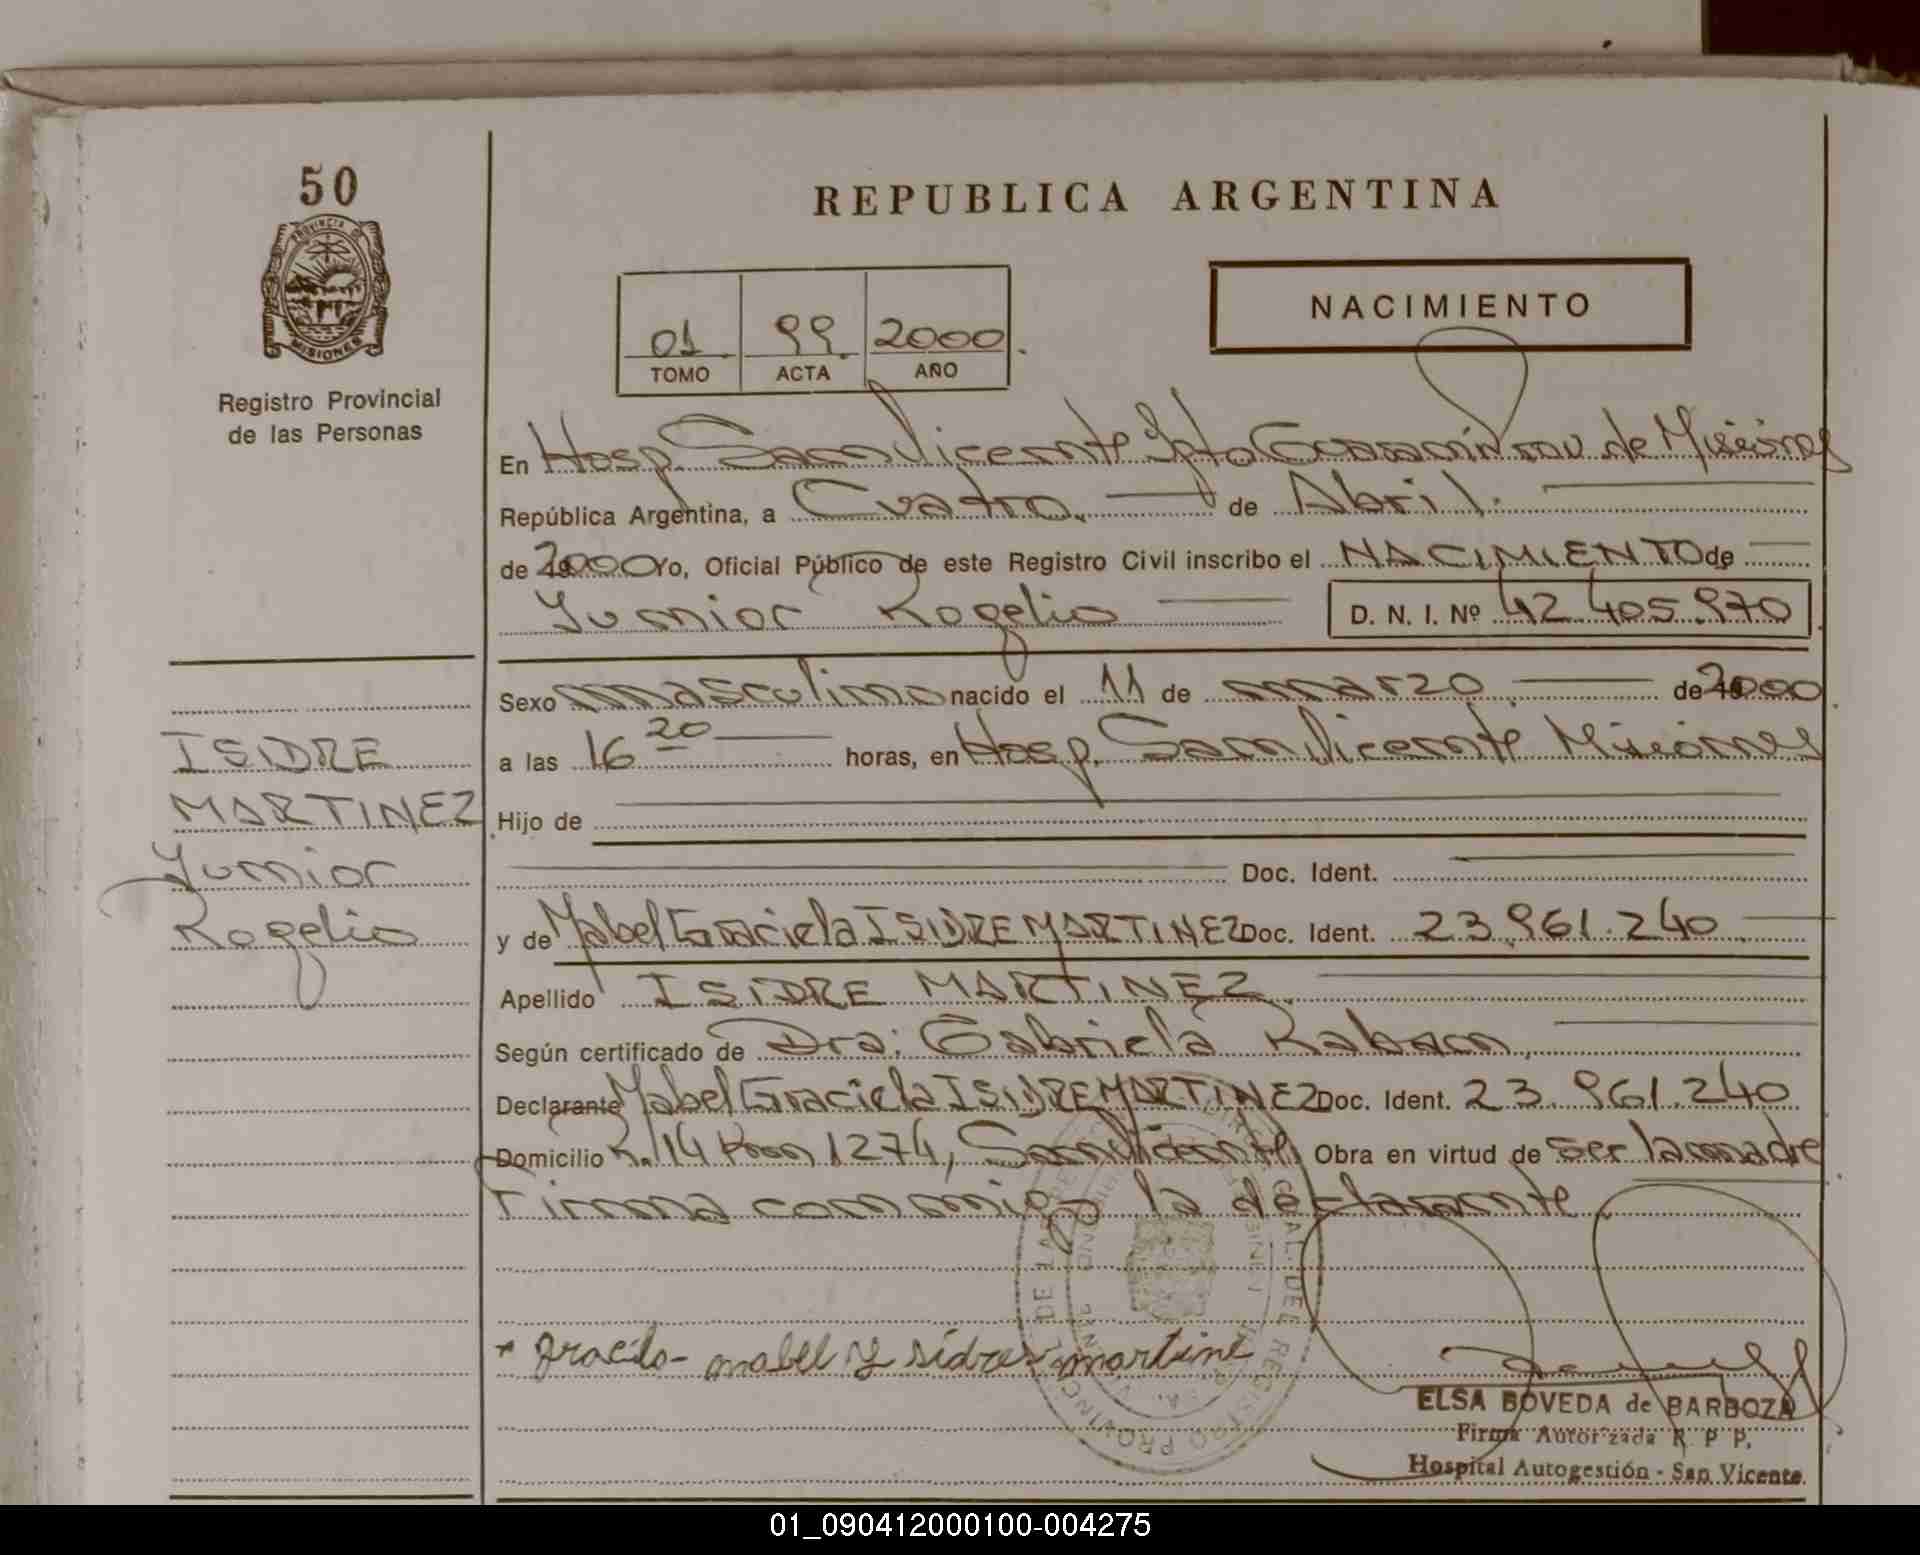 50
PROVINCIA DE
MISIONES
Registro Provincial
de las Personas
REPUBLICA ARGENTINA
01 99 2000
TOMO ACTA AÑO
NACIMIENTO
En Hosp. San Vicente Dpto Guaraní Prov. de Misiones
República Argentina, a Cuatro. de Abril.
de 2000 Yo, Oficial Público de este Registro Civil inscribo el NACIMIENTO de
Yunior Rogelio D. N. I. Nº 42.405.970
Sexo masculino nacido el 11 de marzo de 2000
a las 16 20 horas, en Hosp. San Vicente Misiones
Hijo de
Doc. Ident.
y de Mabel Graciela ISIDRE MARTINEZ Doc. Ident. 23.961.240
Apellido ISIDRE MARTINEZ.
Según certificado de Dra: Gabriela
Declarante Mabel Graciela ISIDRE MARTINEZ Doc. Ident. 23.961.240
Domicilio R. 14 Km 1274, San Vicente Obra en virtud de ser la madre
Firma conmigo la declarante.
ISIDRE
MARTINEZ
Yunior
Rogelio
mabel y sidre martine
ELSA BOVEDA de BARBOZA
Firma Autorizada R. P. P.
Hospital Autogestión - San Vicente
01_090412000100-004275